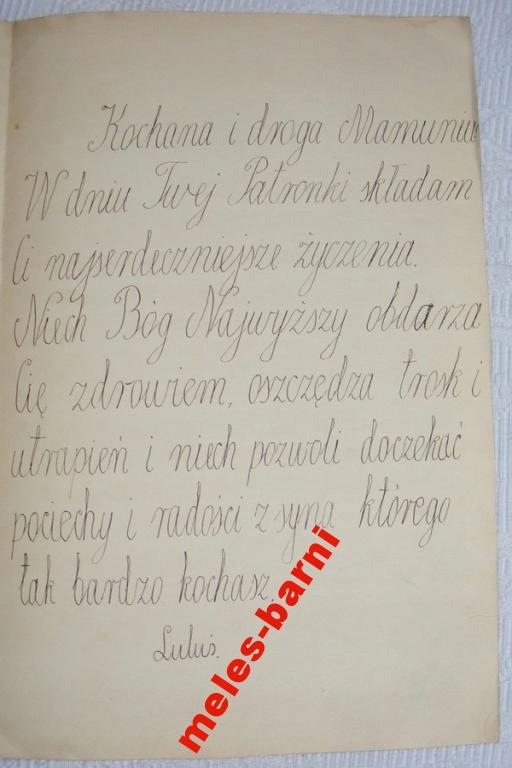 Kochana i droga Mamuniu
W dniu Twej Patronki składam
Ci najserdeczniejsze życzenia.
Niech Bóg Najwyższy obdarza
Cię zdrowiem, oszczędza trosk i
utrapień i niech pozwoli doczekać
pociechy i radości z syna którego
tak bardzo kochasz.
Luluś.
meles-barni